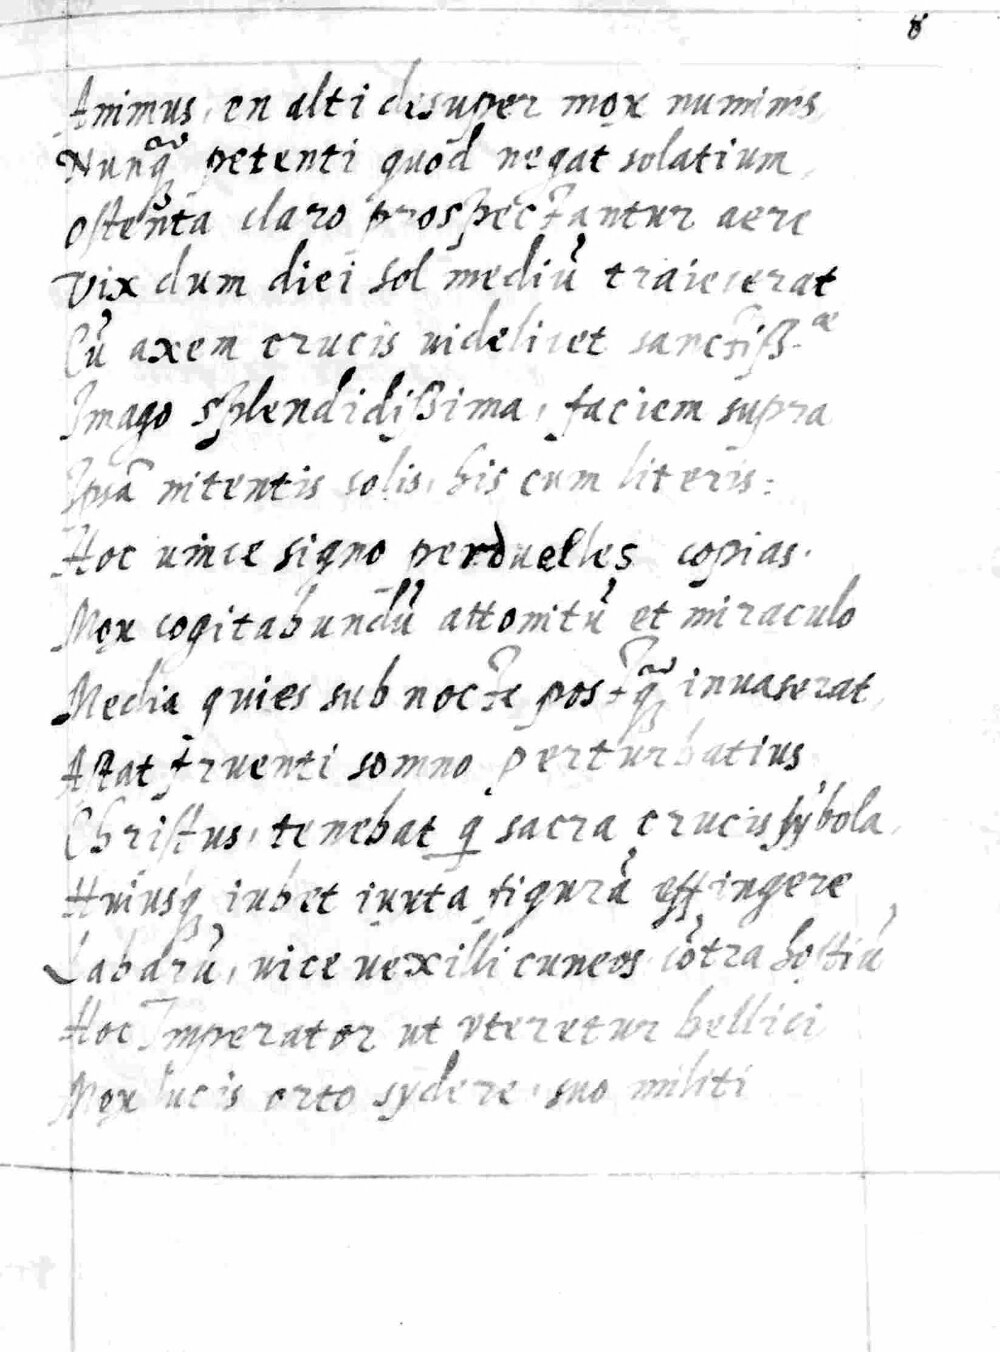 8
Animus, en alti desuper mox numinis,
Nunq̃ petenti quod negat solatium,
Ostenta claro prospectantur aere
Vix dum diei sol mediũ traiecerat
Cũ axem crucis uidelicet sanctiß.ae
Imago splendidißima, faciem supra
Ipsã nitentis solis, his cum literis:
Hoc uince signo perduelles copias.
Mox cogitabundũ attonitũ et miraculo
Media quies sub nocte postq̃ inuaserat,
Astat fruenti somno perturbatius
Christus, tenebat q sacra crucis sỹbola,
Huiusq; iubet iuxta figurã effingere
Labarũ, uice uexilli cuneos cõtra hostiũ
Hoc Imperator ut vteretur bellici
Mox lucis orto sydere, suo militi